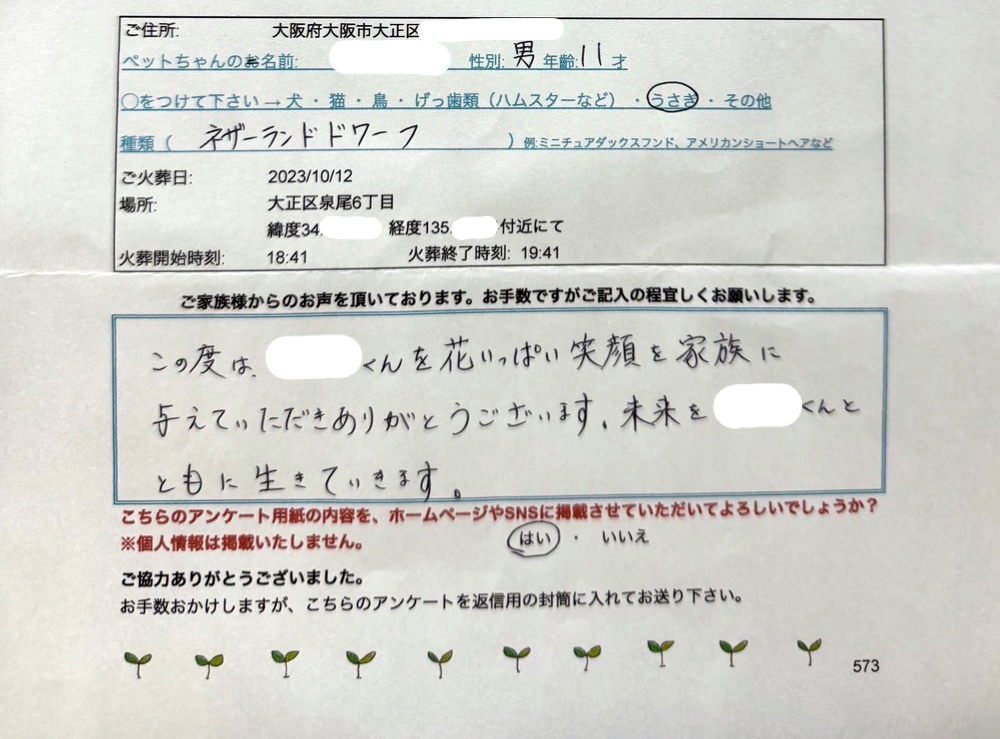 ご住所: 大阪府大阪市大正区
ペットちゃんのお名前: 性別: 男 年齢: 11 才
○をつけて下さい→犬・猫・鳥・げっ歯類（ハムスターなど）・うさぎ・その他
種類（ ネザーランドドワーフ ）例:ミニチュアダックスフンド、アメリカンショートヘアなど
ご火葬日: 2023/10/12
場所: 大正区泉尾6丁目
緯度34. 経度135. 付近にて
火葬開始時刻: 18:41 火葬終了時刻: 19:41
ご家族様からのお声を頂いております。お手数ですがご記入の程宜しくお願いします。
この度は、くんを花いっぱい笑顔を家族に
与えていただきありがとうございます。未来をくんと
ともに生きていきます。
こちらのアンケート用紙の内容を、ホームページやSNSに掲載させていただいてよろしいでしょうか？
※個人情報は掲載いたしません。 はい ・ いいえ
ご協力ありがとうございました。
お手数おかけしますが、こちらのアンケートを返信用の封筒に入れてお送り下さい。
573